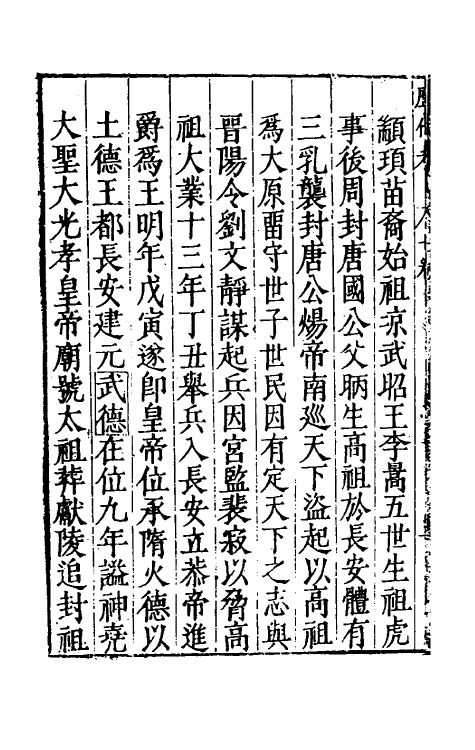 顓頊苗裔始祖凉武昭王李暠五世生祖虎
事後周封唐國公父昞生高祖於長安體有
三乳襲封唐公煬帝南廵天下盜起以高祖
爲大原畱守世子世民因有定天下之志與
晋陽令劉文靜謀起兵因宮監裴寂以脅高
祖大業十三年丁丑舉兵入長安立恭帝進
爵爲王明年戊寅遂卽皇帝位承隋火德以
土德王都長安建元武德在位九年謚神堯
大聖大光孝皇帝廟號太祖葬獻陵追封祖